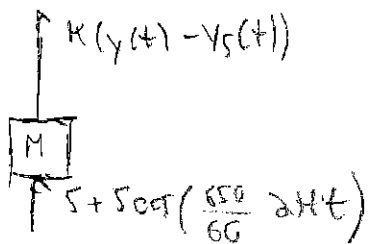 K(y(t) - ys(t))
M
5 + 5 cos( 650/60 2πt )